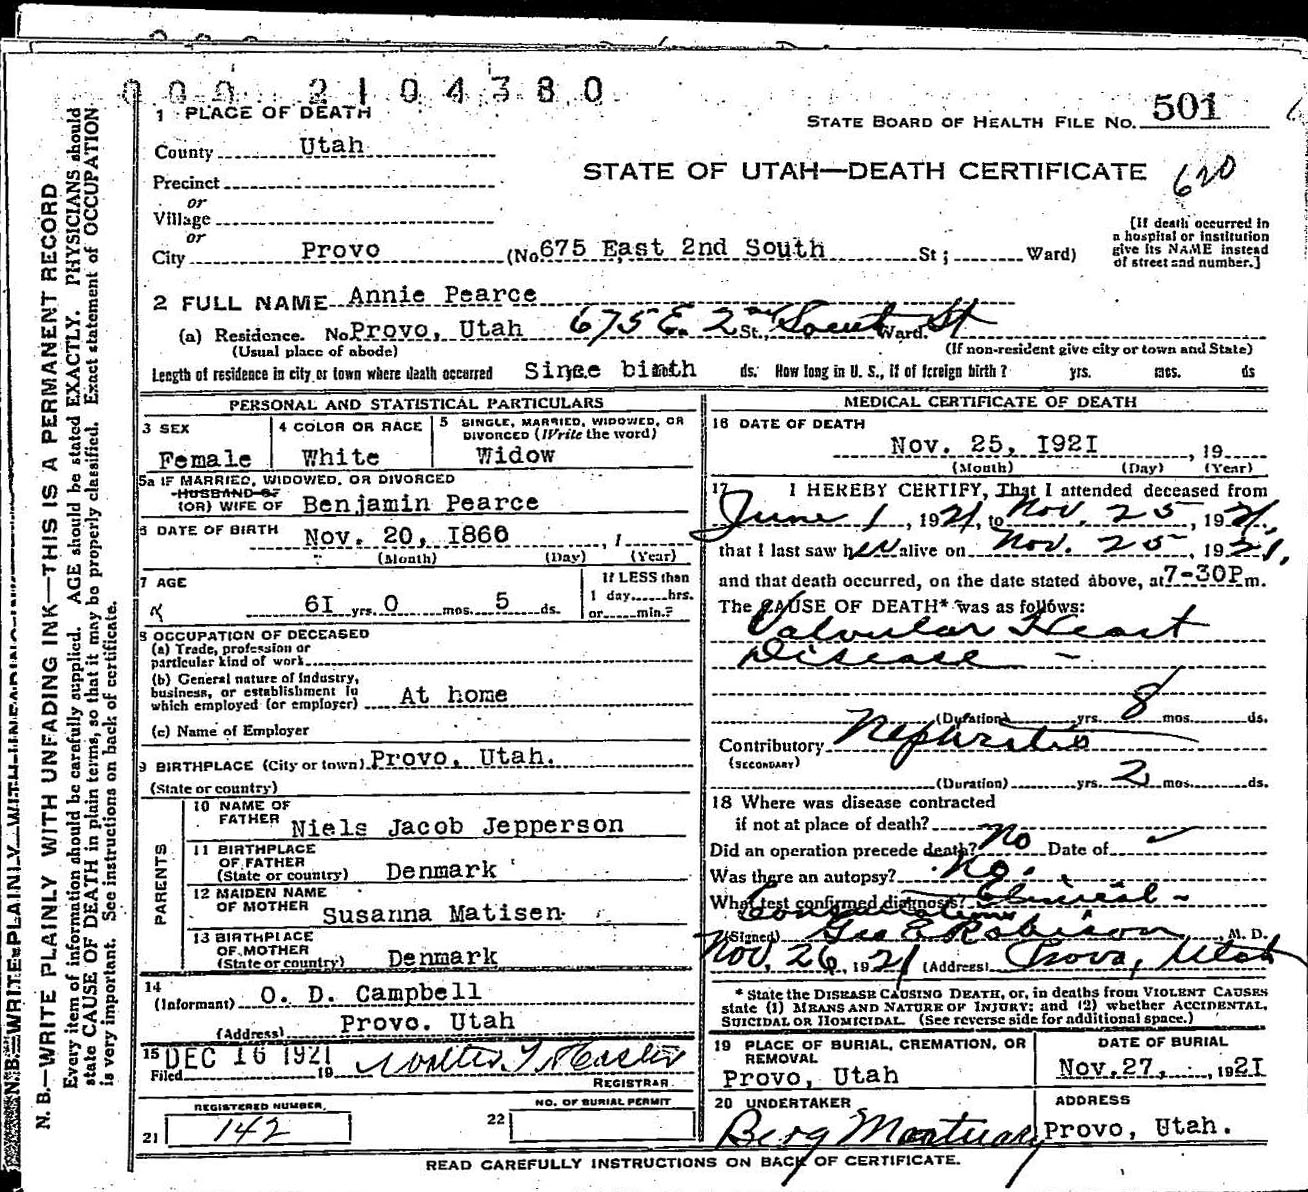 000 2104380
1 PLACE OF DEATH
STATE BOARD OF HEALTH FILE NO. 501
County Utah
STATE OF UTAH—DEATH CERTIFICATE 620
Precinct
or
Village
or
City Provo (No 675 East 2nd South St ; Ward)
[If death occurred in
a hospital or institution
give its NAME instead
of street and number.]
2 FULL NAME Annie Pearce
(a) Residence. No Provo, Utah 675 E. 2nd St., South Ward. St
(Usual place of abode) (If non-resident give city or town and State)
Length of residence in city or town where death occurred Since birth ds. How long in U. S., if of foreign birth? yrs. mos. ds
PERSONAL AND STATISTICAL PARTICULARS
3 SEX Female
4 COLOR OR RACE White
5 SINGLE, MARRIED, WIDOWED, OR
DIVORCED (Write the word)
Widow
5a IF MARRIED, WIDOWED, OR DIVORCED
HUSBAND OF
(OR) WIFE OF Benjamin Pearce
6 DATE OF BIRTH Nov. 20, I860
(Month) (Day) (Year)
7 AGE
6I yrs. 0 mos. 5 ds.
If LESS than
1 day......hrs.
or......min.?
8 OCCUPATION OF DECEASED
(a) Trade, profession or
particular kind of work
(b) General nature of industry,
business, or establishment in
which employed (or employer) At home
(c) Name of Employer
9 BIRTHPLACE (City or town) Provo, Utah.
(State or country)
PARENTS
10 NAME OF
FATHER Niels Jacob Jepperson
11 BIRTHPLACE
OF FATHER
(State or country) Denmark
12 MAIDEN NAME
OF MOTHER Susanna Matisen
13 BIRTHPLACE
OF MOTHER
(State or country) Denmark
14
(Informant) O. D. Campbell
(Address) Provo. Utah
15 DEC 16 1921
Filed 19
REGISTRAR
REGISTERED NUMBER
21 142
NO. OF BURIAL PERMIT
22
MEDICAL CERTIFICATE OF DEATH
16 DATE OF DEATH
Nov. 25, I92I , 19
(Month) (Day) (Year)
17 I HEREBY CERTIFY, That I attended deceased from
June 1, 1921, to Nov. 25, 1921,
that I last saw her alive on Nov. 25, 1921,
and that death occurred, on the date stated above, at 7-30P m.
The CAUSE OF DEATH* was as follows:
Valvular Heart
Disease -
(Duration) yrs. 8 mos. ds.
Contributory Nephritis
(SECONDARY)
(Duration) yrs. 2 mos. ds.
18 Where was disease contracted
if not at place of death?
Did an operation precede death? No Date of
Was there an autopsy? No.
What test confirmed diagnosis? Clinical -
Consultation
(Signed) Geo E Robison, M. D.
Nov. 26, 1921 (Address) Provo, Utah
* State the DISEASE CAUSING DEATH, or, in deaths from VIOLENT CAUSES
state (1) MEANS AND NATURE OF INJURY; and (2) whether ACCIDENTAL,
SUICIDAL OR HOMICIDAL. (See reverse side for additional space.)
19 PLACE OF BURIAL, CREMATION, OR
REMOVAL
Provo, Utah
DATE OF BURIAL
Nov.27, , 192I
20 UNDERTAKER
Berg Mortuary
ADDRESS
Provo, Utah.
READ CAREFULLY INSTRUCTIONS ON BACK OF CERTIFICATE.
N. B.—WRITE PLAINLY WITH UNFADING INK—THIS IS A PERMANENT RECORD
Every item of information should be carefully supplied. AGE should be stated EXACTLY. PHYSICIANS should
state CAUSE OF DEATH in plain terms, so that it may be properly classified. Exact statement of OCCUPATION
is very important. See instructions on back of certificate.